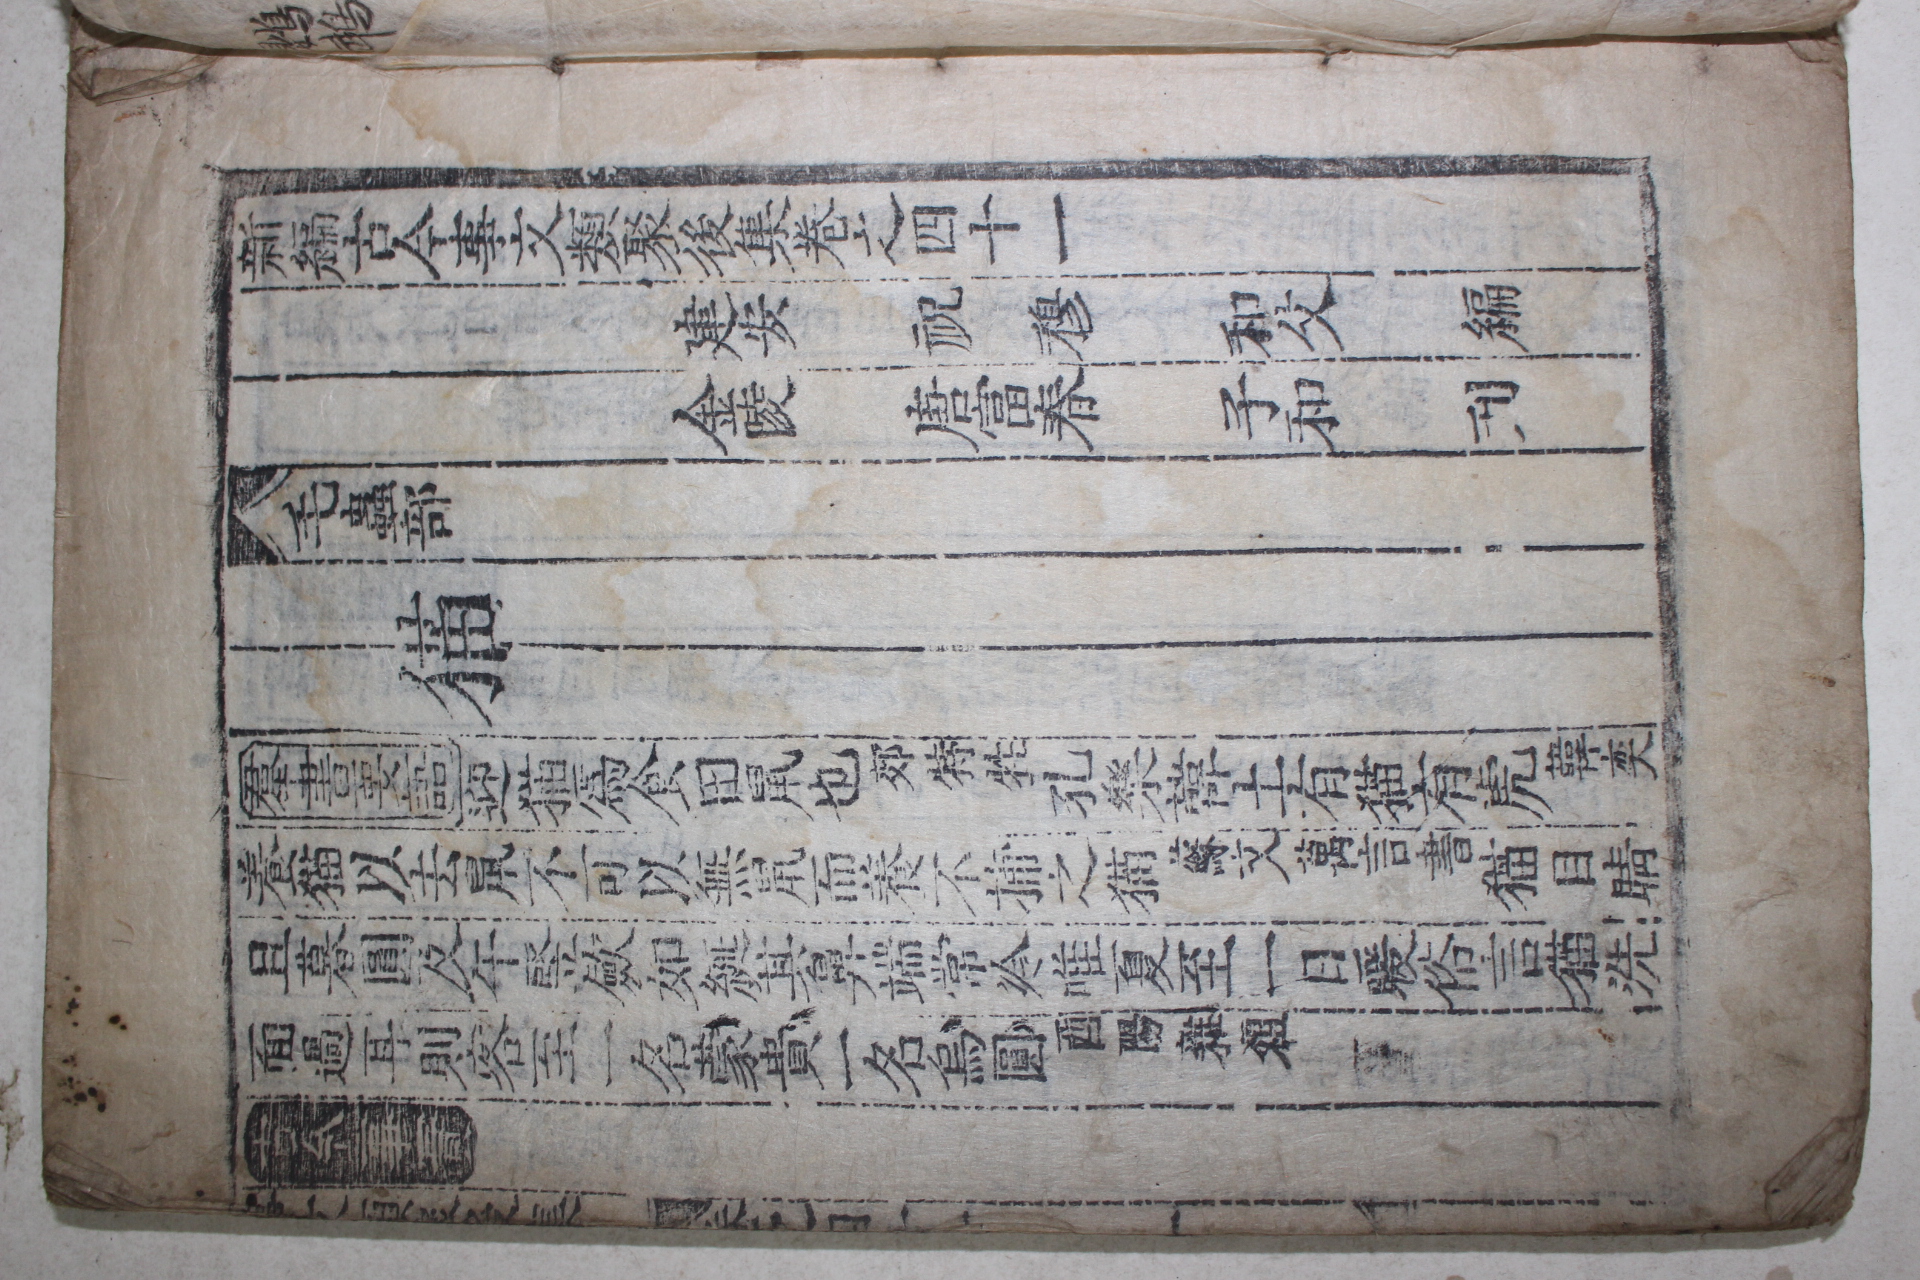 新編古今事文類聚後集卷之四十一
建安 祝 穆 和父 編
金陵 唐富春 子和 刊
毛蟲部
猫
羣書要語 迎猫爲食田鼠也 郊特牲 孔樂韓土有猫有虎 韓奕
養猫以去鼠不可以無鼠而養不捕之猫 蘇文萬言書 猫目睛
旦暮圓及午竪歛如綖其鼻端常冷唯夏至一日暖俗言猫洗
面過耳則客至一名蒙貴一名烏圓 酉陽雜俎
古今事實